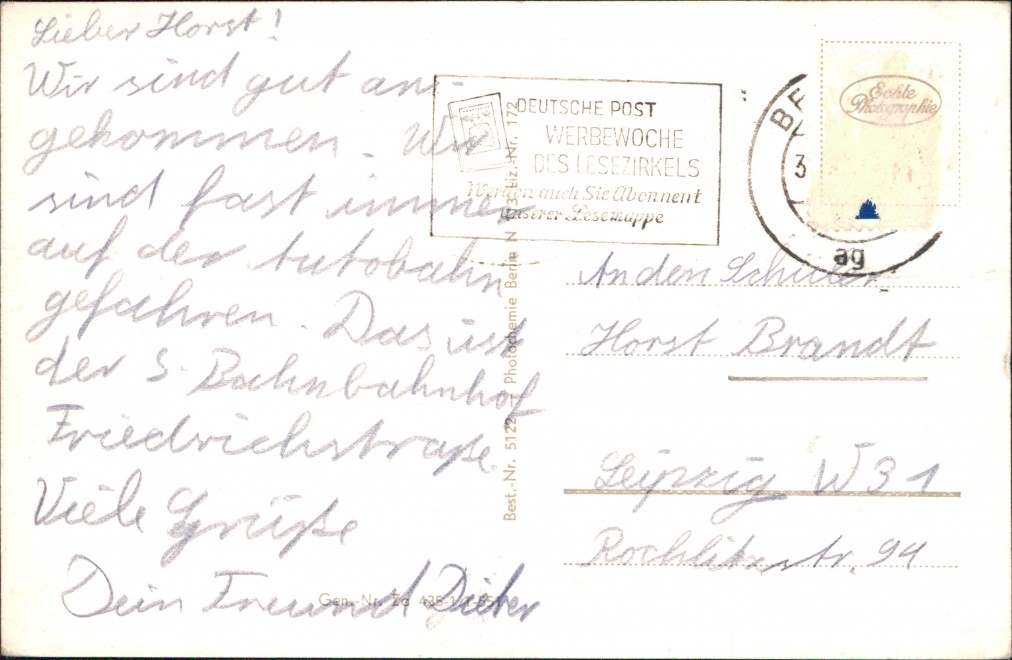 Lieber Horst!
Wir sind gut an-
gekommen. Wir
sind fast immer
auf der Autobahn
gefahren. Das ist
der S. Bahnbahnhof
Friedrichstraße
Viele Grüße
Dein Freund Dieter
DEUTSCHE POST
WERBEWOCHE
DES LESEZIRKELS
Werden auch Sie Abonnent
unserer Lesemappe
BE
3
ag
Echte
Photographie
An den Schüler
Horst Brandt
Leipzig W 31
Rochlitzstr. 94
Best.-Nr. 5122 Photochemie Berlin N Liz.-Nr. 1172
Gen.-Nr.